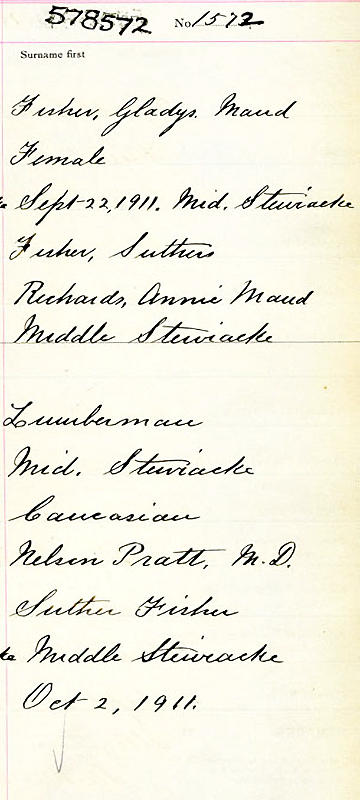 578572 No. 1572
Surname first
Fisher, Gladys. Maud
Female
Sept 22, 1911. Mid. Stewiacke
Fisher, Suthers
Richards, Annie Maud
Middle Stewiacke
Lumberman
Mid. Stewiacke
Caucasian
Nelson Pratt, M.D.
Suther Fisher
Middle Stewiacke
Oct 2, 1911.